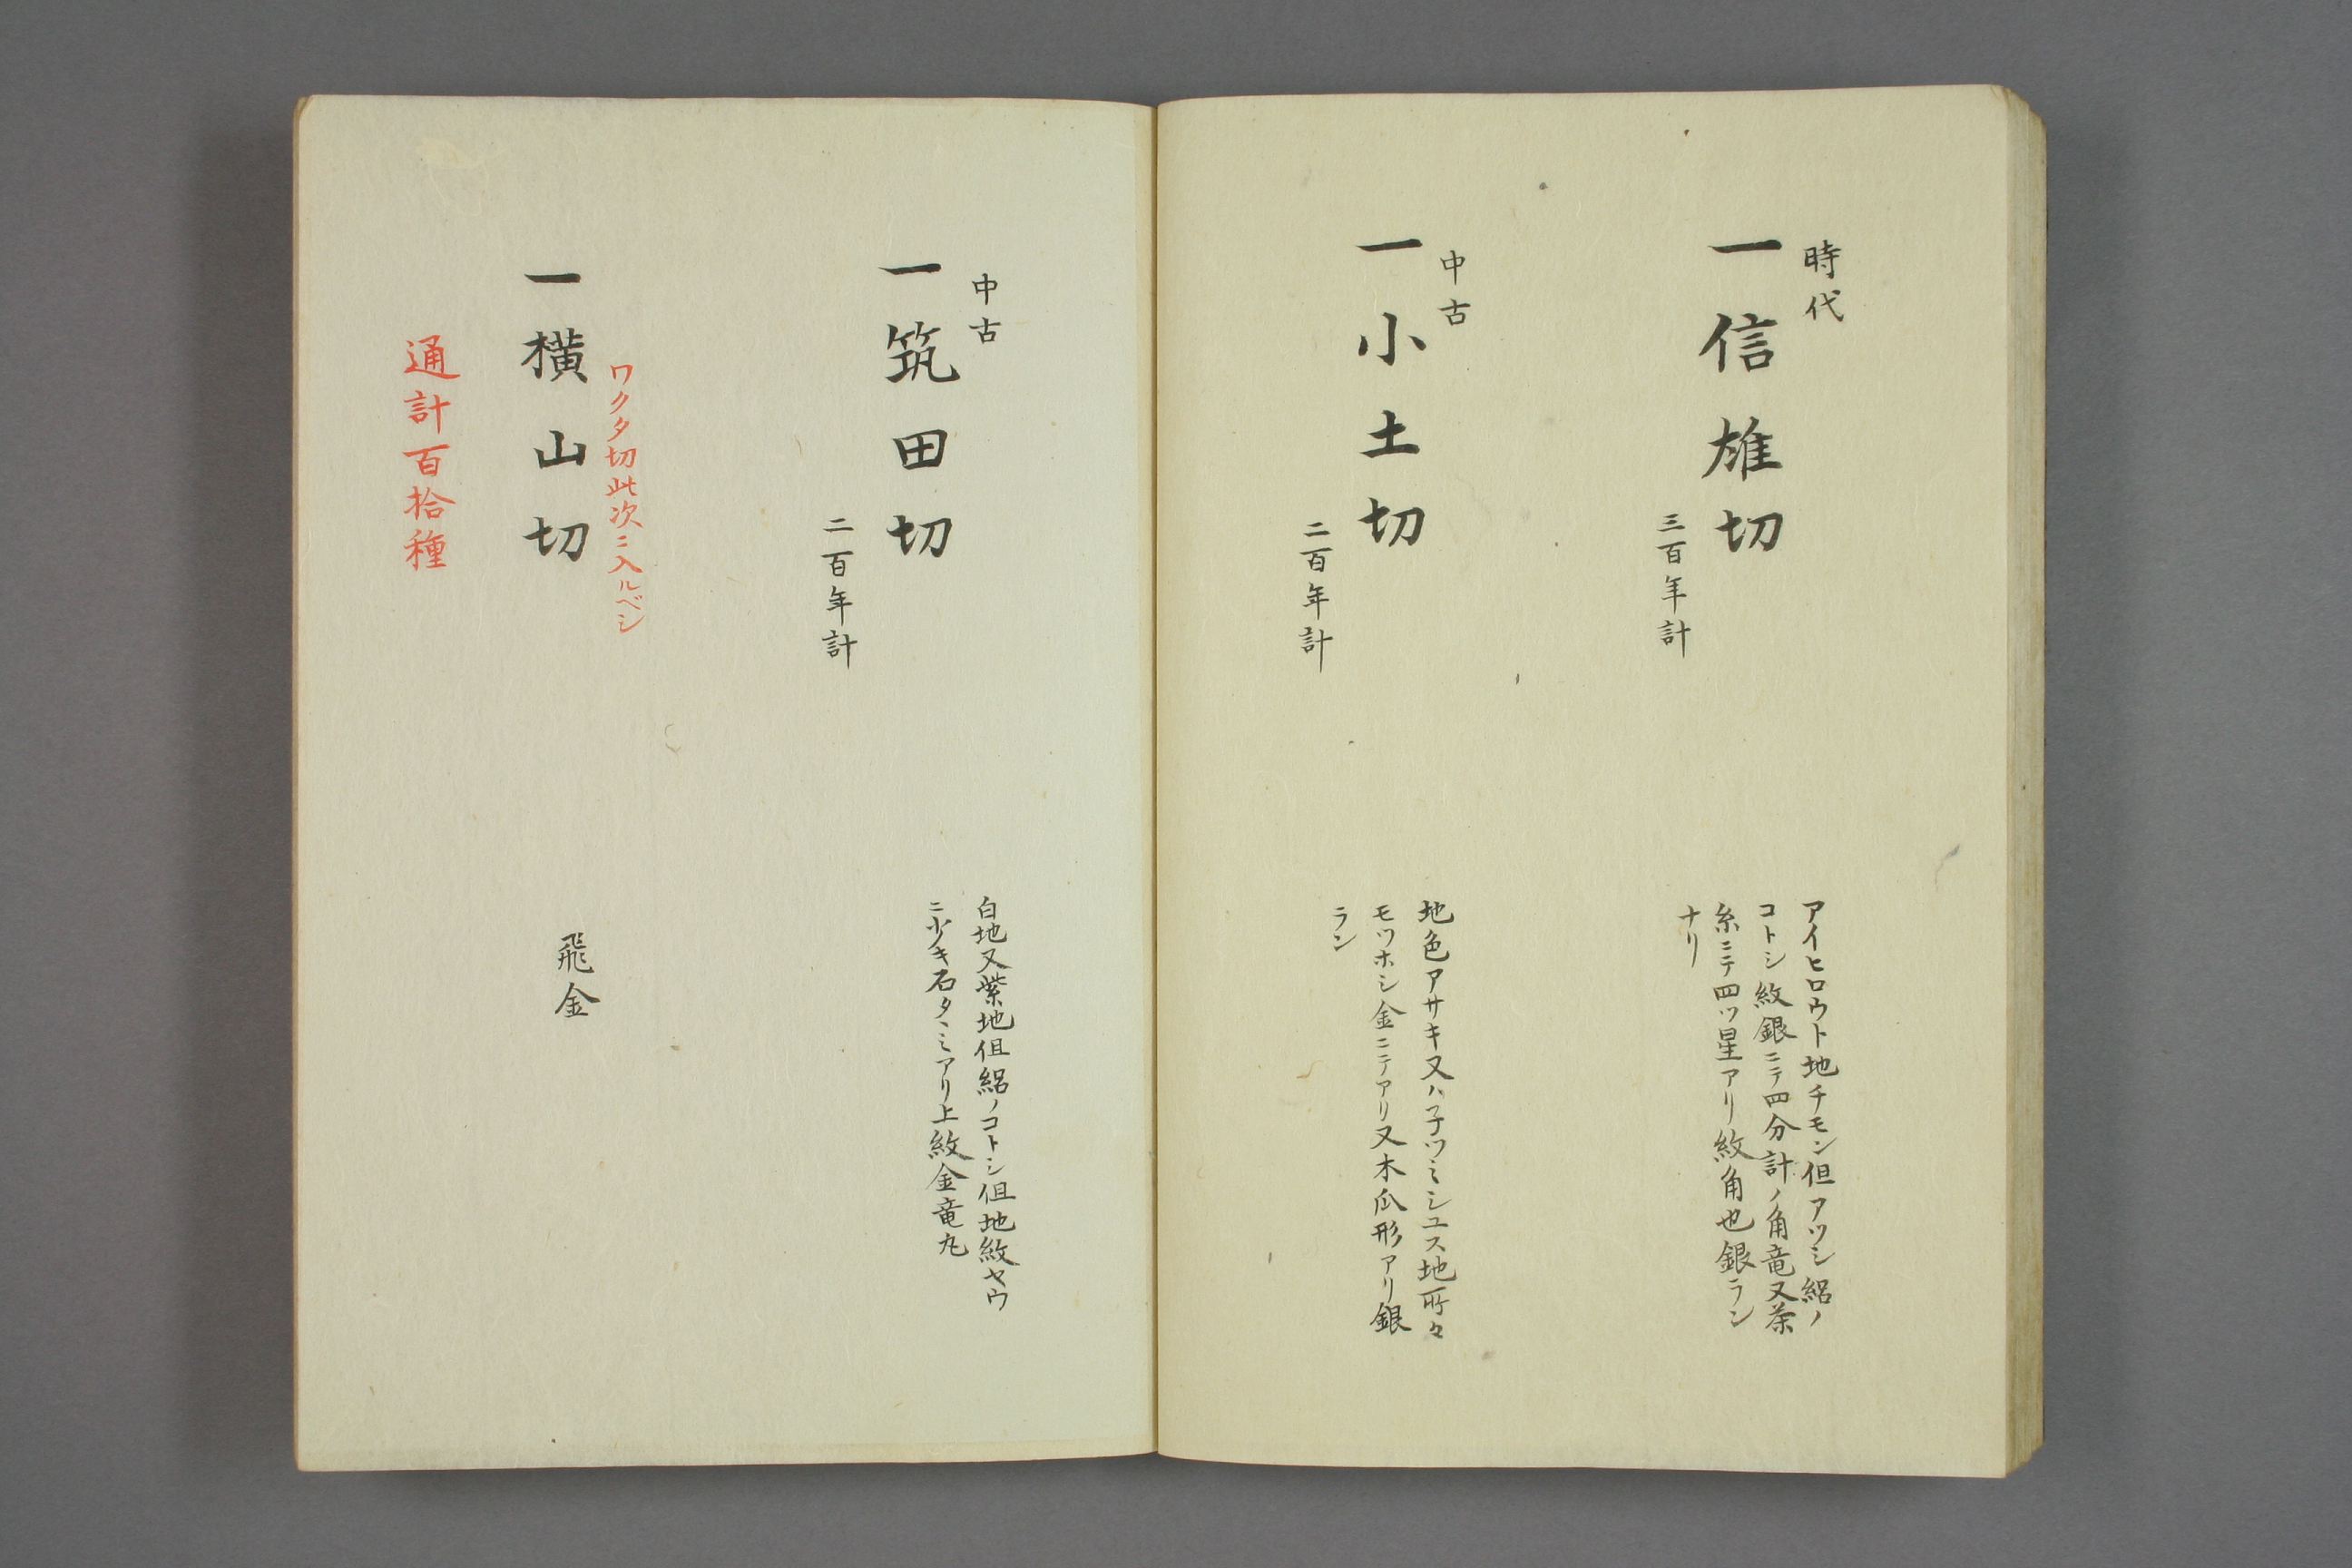 時代
一信雄切
三百年計
アイヒロウト地チモン但アツシ絽ノ
コトシ紋銀ニテ四分計ノ角竜又茶
糸ニテ四ツ星アリ紋角也銀ラン
ナリ
中古
一小土切
二百年計
地色アサキ又ハ子ツミシユス地所々
モツホシ金ニテアリ又木瓜形アリ銀
ラン
中古
一筑田切
二百年計
白地又紫地但絽ノコトシ但地紋ヤウ
ニ少キ石タヽミアリ上紋金竜丸
ワクタ切此次ニ入ルベシ
一横山切
飛金
通計百拾種